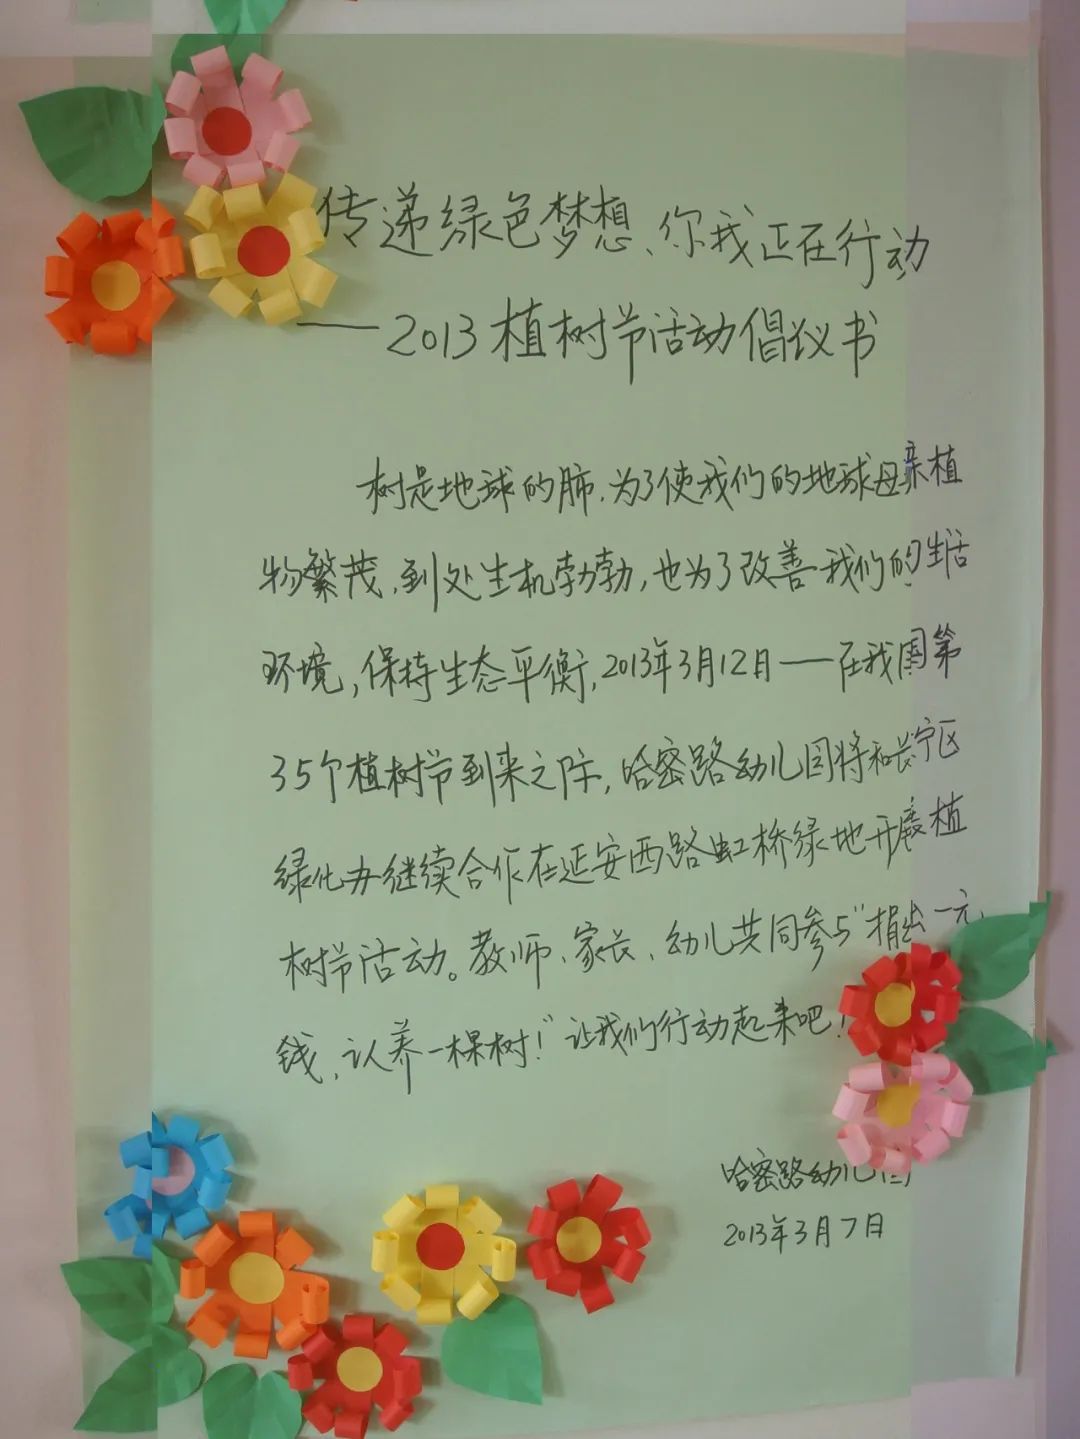 传递绿色梦想、你我正在行动
——2013植树节活动倡议书
树是地球的肺.为了使我们的地球母亲植
物繁茂,到处生机勃勃,也为了改善我们的生活
环境,保持生态平衡,2013年3月12日——在我国第
35个植树节到来之际,哈密路幼儿园将和长宁区
绿化办继续合作在延安西路虹桥绿地开展植
树节活动。教师、家长、幼儿共同参与“捐出一元
钱,认养一棵树!”让我们行动起来吧!
哈密路幼儿园
2013年3月7日